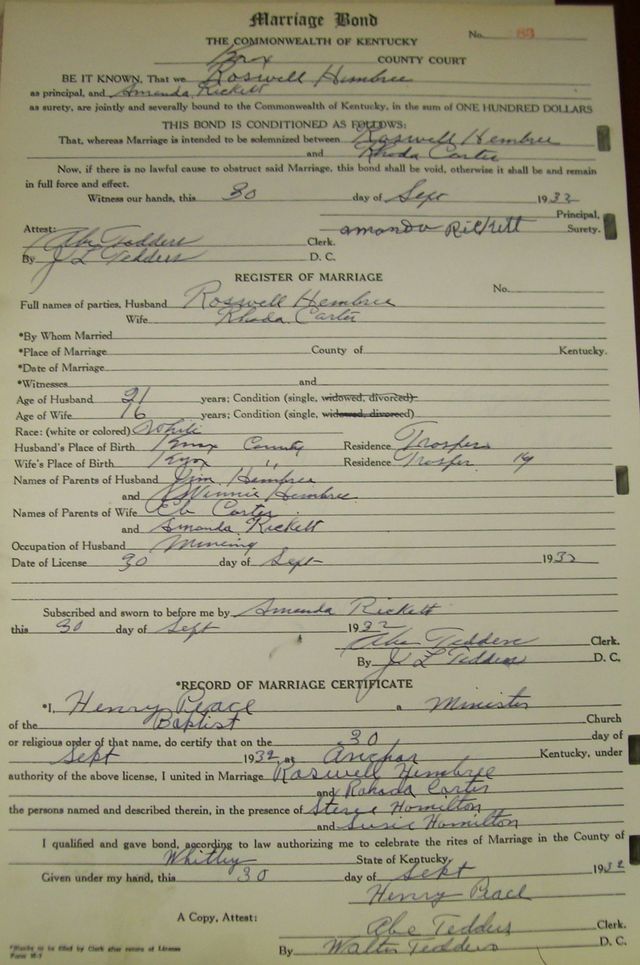 Marriage Bond
No. 83
THE COMMONWEALTH OF KENTUCKY
Knox COUNTY COURT
BE IT KNOWN, That we Roswell Hembree
as principal, and Amanda Rickett
as surety, are jointly and severally bound to the Commonwealth of Kentucky, in the sum of ONE HUNDRED DOLLARS
THIS BOND IS CONDITIONED AS FOLLOWS:
That, whereas Marriage is intended to be solemnized between Roswell Hembree
and Rhoda Carter
Now, if there is no lawful cause to obstruct said Marriage, this bond shall be void, otherwise it shall be and remain
in full force and effect.
Witness our hands, this 30 day of Sept 1932
Principal,
Amanda Rickett Surety.
Attest:
Abe Tedders Clerk.
By J L Tedders D. C.
REGISTER OF MARRIAGE
No.
Full names of parties, Husband Roswell Hembree
Wife Rhoda Carter
*By Whom Married
*Place of Marriage County of Kentucky.
*Date of Marriage
*Witnesses and
Age of Husband 21 years; Condition (single, widowed, divorced)
Age of Wife 16 years; Condition (single, widowed, divorced)
Race: (white or colored) White
Husband's Place of Birth Knox County Residence Trosper
Wife's Place of Birth Knox " Residence Trosper Ky
Names of Parents of Husband Jim Hembree
and Winnie Hembree
Names of Parents of Wife Eb Carter
and Amanda Rickett
Occupation of Husband Mining
Date of License 30 day of Sept 1932
Subscribed and sworn to before me by Amanda Rickett
this 30 day of Sept 1932
Abe Tedders Clerk.
By J L Tedders D. C.
*RECORD OF MARRIAGE CERTIFICATE
*I, Henry Peace a Minister
of the Baptist Church
or religious order of that name, do certify that on the 30 day of
Sept 1932 at Anchor Kentucky, under
authority of the above license, I united in Marriage Roswell Hembree
and Rohada Carter
the persons named and described therein, in the presence of Steve Homilton
and Susie Homilton
I qualified and gave bond, according to law authorizing me to celebrate the rites of Marriage in the County of
Whitley State of Kentucky.
Given under my hand, this 30 day of Sept 1932
Henry Peace
A Copy, Attest:
Abe Tedders Clerk.
By Walter Tedders D. C.
*Blanks to be filled by Clerk after return of License